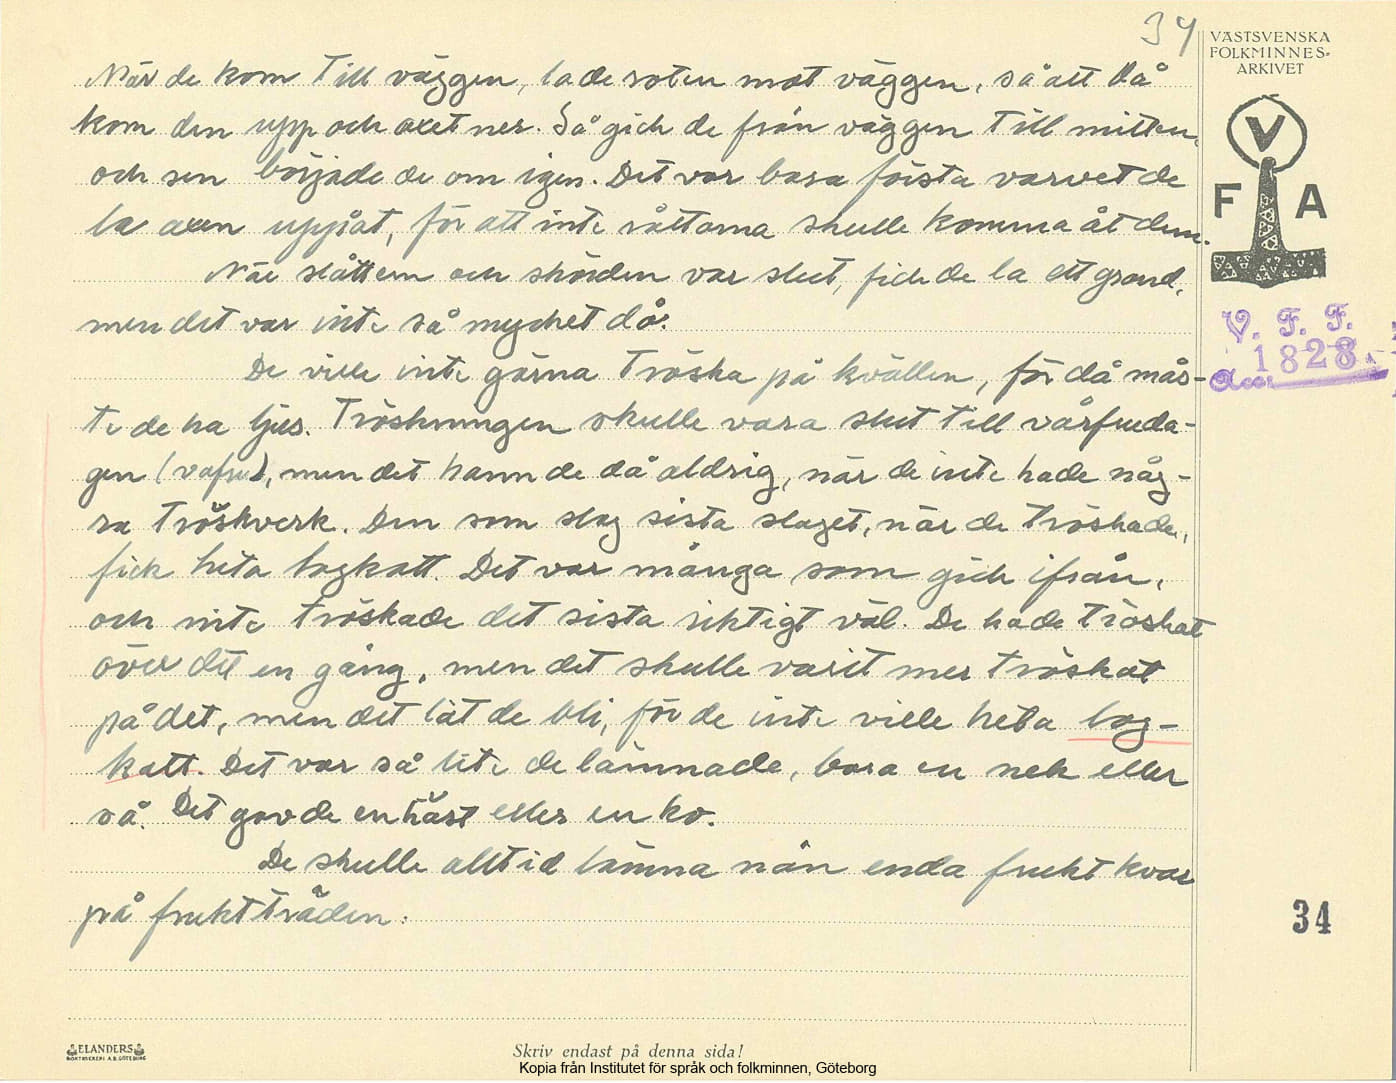 34
VÄSTSVENSKA
FOLKMINNES-
ARKIVET
När de kom till väggen, la de roten mot väggen, så att då
kom den upp och axet ner. Så gick de från väggen till mitten,
och sen började de om igen. Det var bara första varvet de
la axen uppåt, för att inte råttorna skulle komma åt dem.
När slåttern och skörden var slut, fick de la ett grand,
men det var inte så mycket då.
De ville inte gärna tröska på kvällen, för då mås-
te de ha ljus. Tröskningen skulle vara slut till vårfruda-
gen (vafru), men det hann de då aldrig, när de inte hade någ-
ra tröskverk. Den som slog sista slaget, när de tröskade,
fick heta logkatt. Det var många som gick ifrån,
och inte tröskade det sista riktigt väl. De hade tröskat
över det en gång, men det skulle varit mer tröskat
på det, men det lät de bli, för de inte ville heta log-
katt. Det var så lite de lämnade, bara en nek eller
så. Det gav de en häst eller en ko.
De skulle alltid lämna nån enda frukt kvar
på fruktträden.
V
F A
V. F. F.
Acc. 1828
34
ELANDERS
BOKTRYCKERI A.B. GÖTEBORG
Skriv endast på denna sida!
Kopia från Institutet för språk och folkminnen, Göteborg